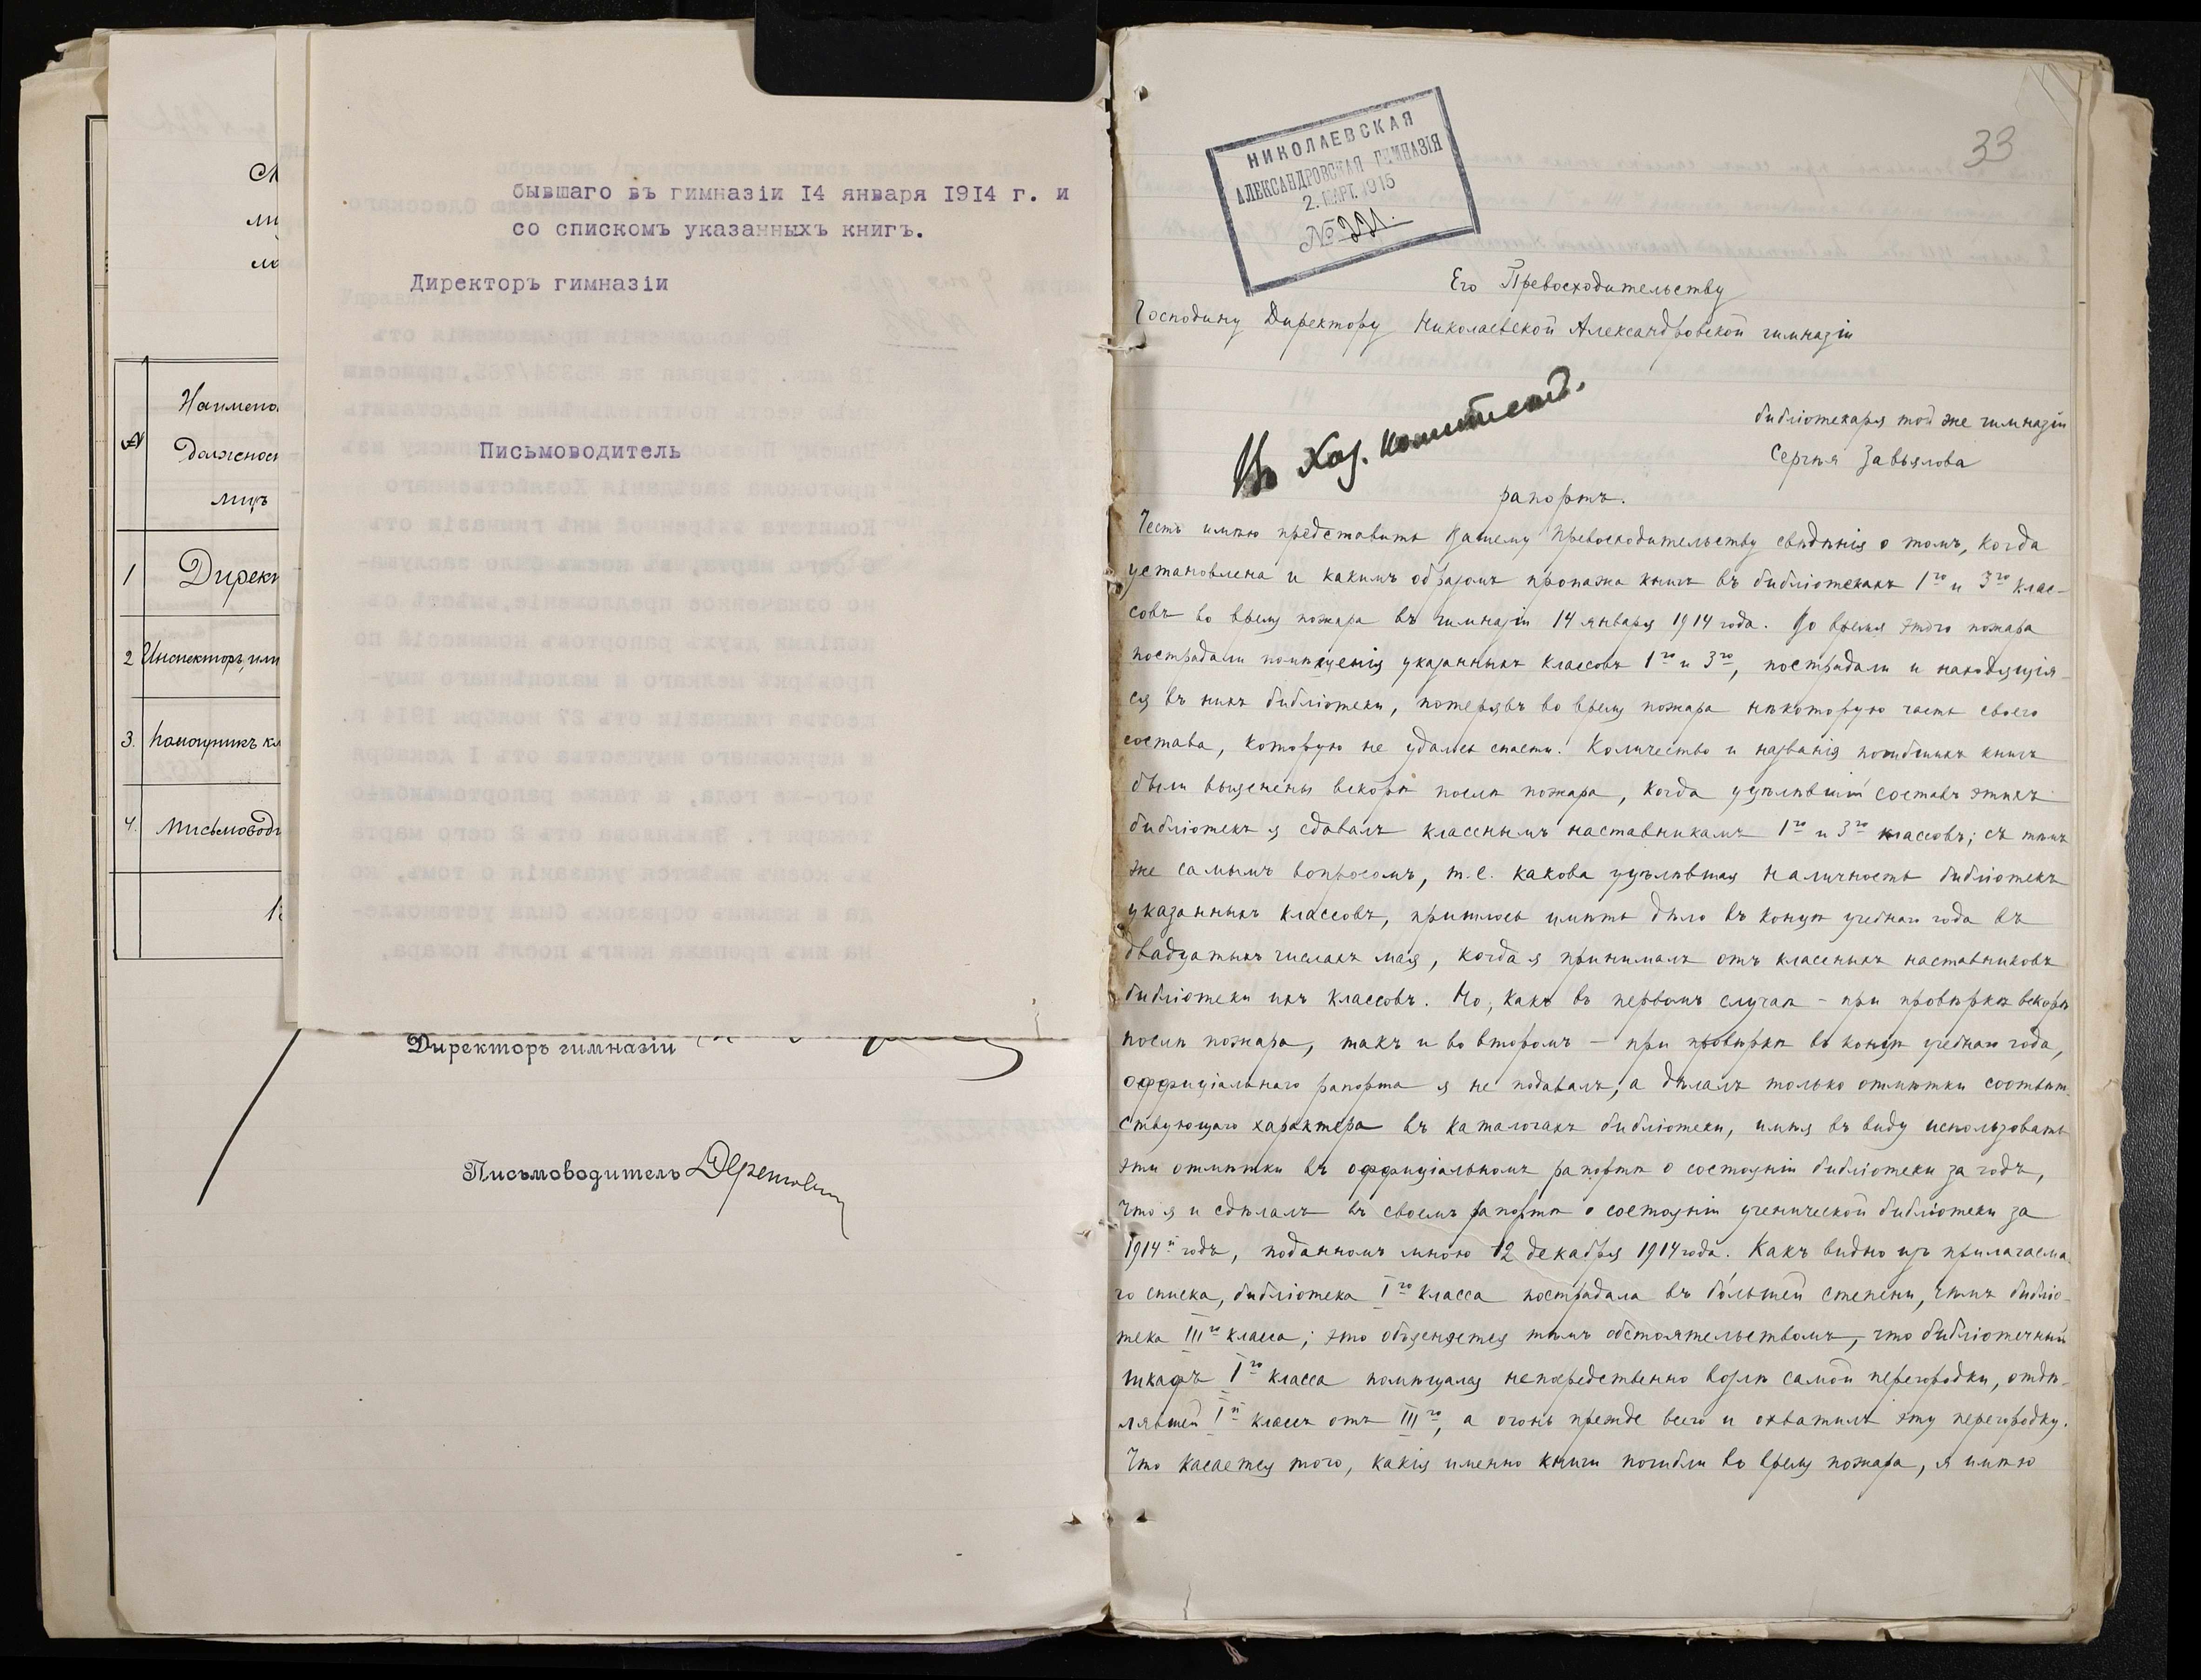 бывшаго въ гимназіи 14 января 1914 г. и
со спискомъ указанныхъ книгъ.
Директоръ гимназіи
Письмоводитель
№
Наимено
Должност
лицъ
1 Дирек
2 Инспекторъ, или
3. Помощникъ кл
4. Письмовод
Директоръ гимназіи
Письмоводитель
33
НИКОЛАЕВСКАЯ
АЛЕКСАНДРОВСКАЯ ГИМНАЗІЯ
2. МАРТ. 1915
№ 221.
Его Превосходительству
Господину Директору Николаевской Александровской гимназіи
Въ Хоз. комитетъ.
библіотекаря той же гимназіи
Сергѣя Завьялова
рапортъ.
Честь имѣю представить Вашему Превосходительству свѣдѣнія о томъ, когда
установлена и какимъ образомъ пропажа книгъ въ библіотекахъ 1го и 3го клас-
совъ во время пожара въ гимназіи 14 января 1914 года. Во время этого пожара
пострадали помѣщенія указанныхъ классовъ 1го и 3го, пострадали и находящія-
ся въ нихъ библіотеки, потерявъ во время пожара нѣкоторую часть своего
состава, которую не удалось спасти. Количество и названія погибшихъ книгъ
были выяснены вскорѣ послѣ пожара, когда уцѣлѣвшій составъ этихъ
библіотекъ я сдавалъ класснымъ наставникамъ 1го и 3го классовъ; съ тѣмъ
же самымъ вопросомъ, т.е. какова уцѣлѣвшая наличность библіотекъ
указанныхъ классовъ, пришлось имѣть дѣло въ концѣ учебнаго года въ
двадцатыхъ числахъ мая, когда я принималъ отъ классныхъ наставниковъ
библіотеки ихъ классовъ. Но, какъ въ первомъ случаѣ – при провѣркѣ вскорѣ
послѣ пожара, такъ и во второмъ – при провѣркѣ въ концѣ учебнаго года,
оффиціальнаго рапорта я не подавалъ, а дѣлалъ только отмѣтки соотвѣт-
ствующаго характера въ каталогахъ библіотеки, имѣя въ виду использовать
эти отмѣтки въ оффиціальномъ рапортѣ о состояніи библіотеки за годъ,
что я и сдѣлалъ въ своемъ рапортѣ о состояніи ученической библіотеки за
1914й годъ, поданномъ мною 12 декабря 1914 года. Какъ видно изъ прилагаема-
го списка, библіотека Iго класса пострадала въ бо́льшей степени, чѣмъ библіо-
тека IIIго класса; это объясняется тѣмъ обстоятельствомъ, что библіотечный
шкафъ Iго класса помѣщался непосредственно возлѣ самой перегородки, отдѣ-
лявшей Iй классъ отъ IIIго, а огонь прежде всего и охватилъ эту перегородку.
Что касается того, какія именно книги погибли во время пожара, я имѣю